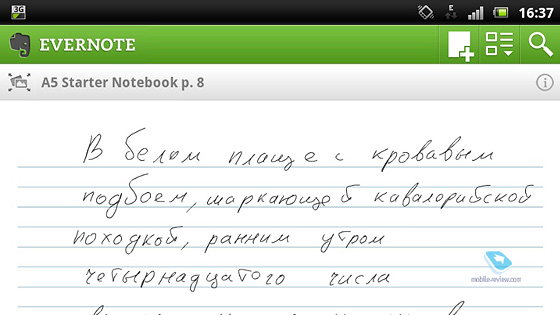 3G E 16:37
EVERNOTE
A5 Starter Notebook p. 8
В белом плаще с кровавым
подбоем, шаркающей кавалерийской
походкой, ранним утром
четырнадцатого числа
mobile-review.com